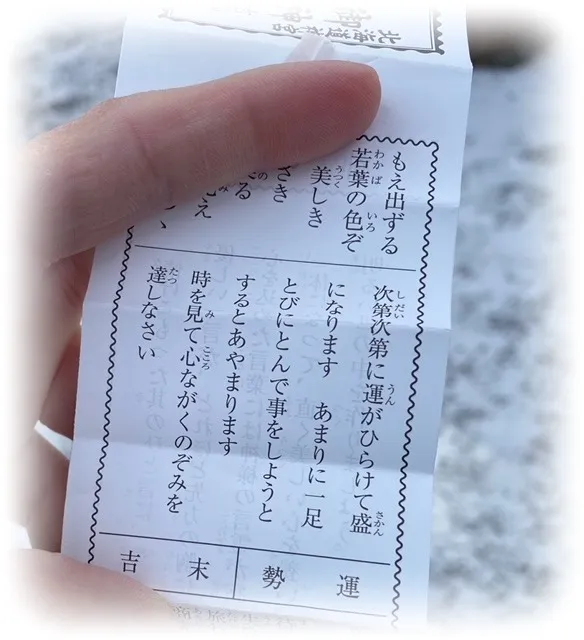 北海道神宮
もえ出ずる
若葉の色ぞ
美しき
さき
る
え
次第次第に運がひらけて盛
になります　あまりに一足
とびにとんで事をしようと
するとあやまります
時を見て心ながくのぞみを
達しなさい
運勢
末吉